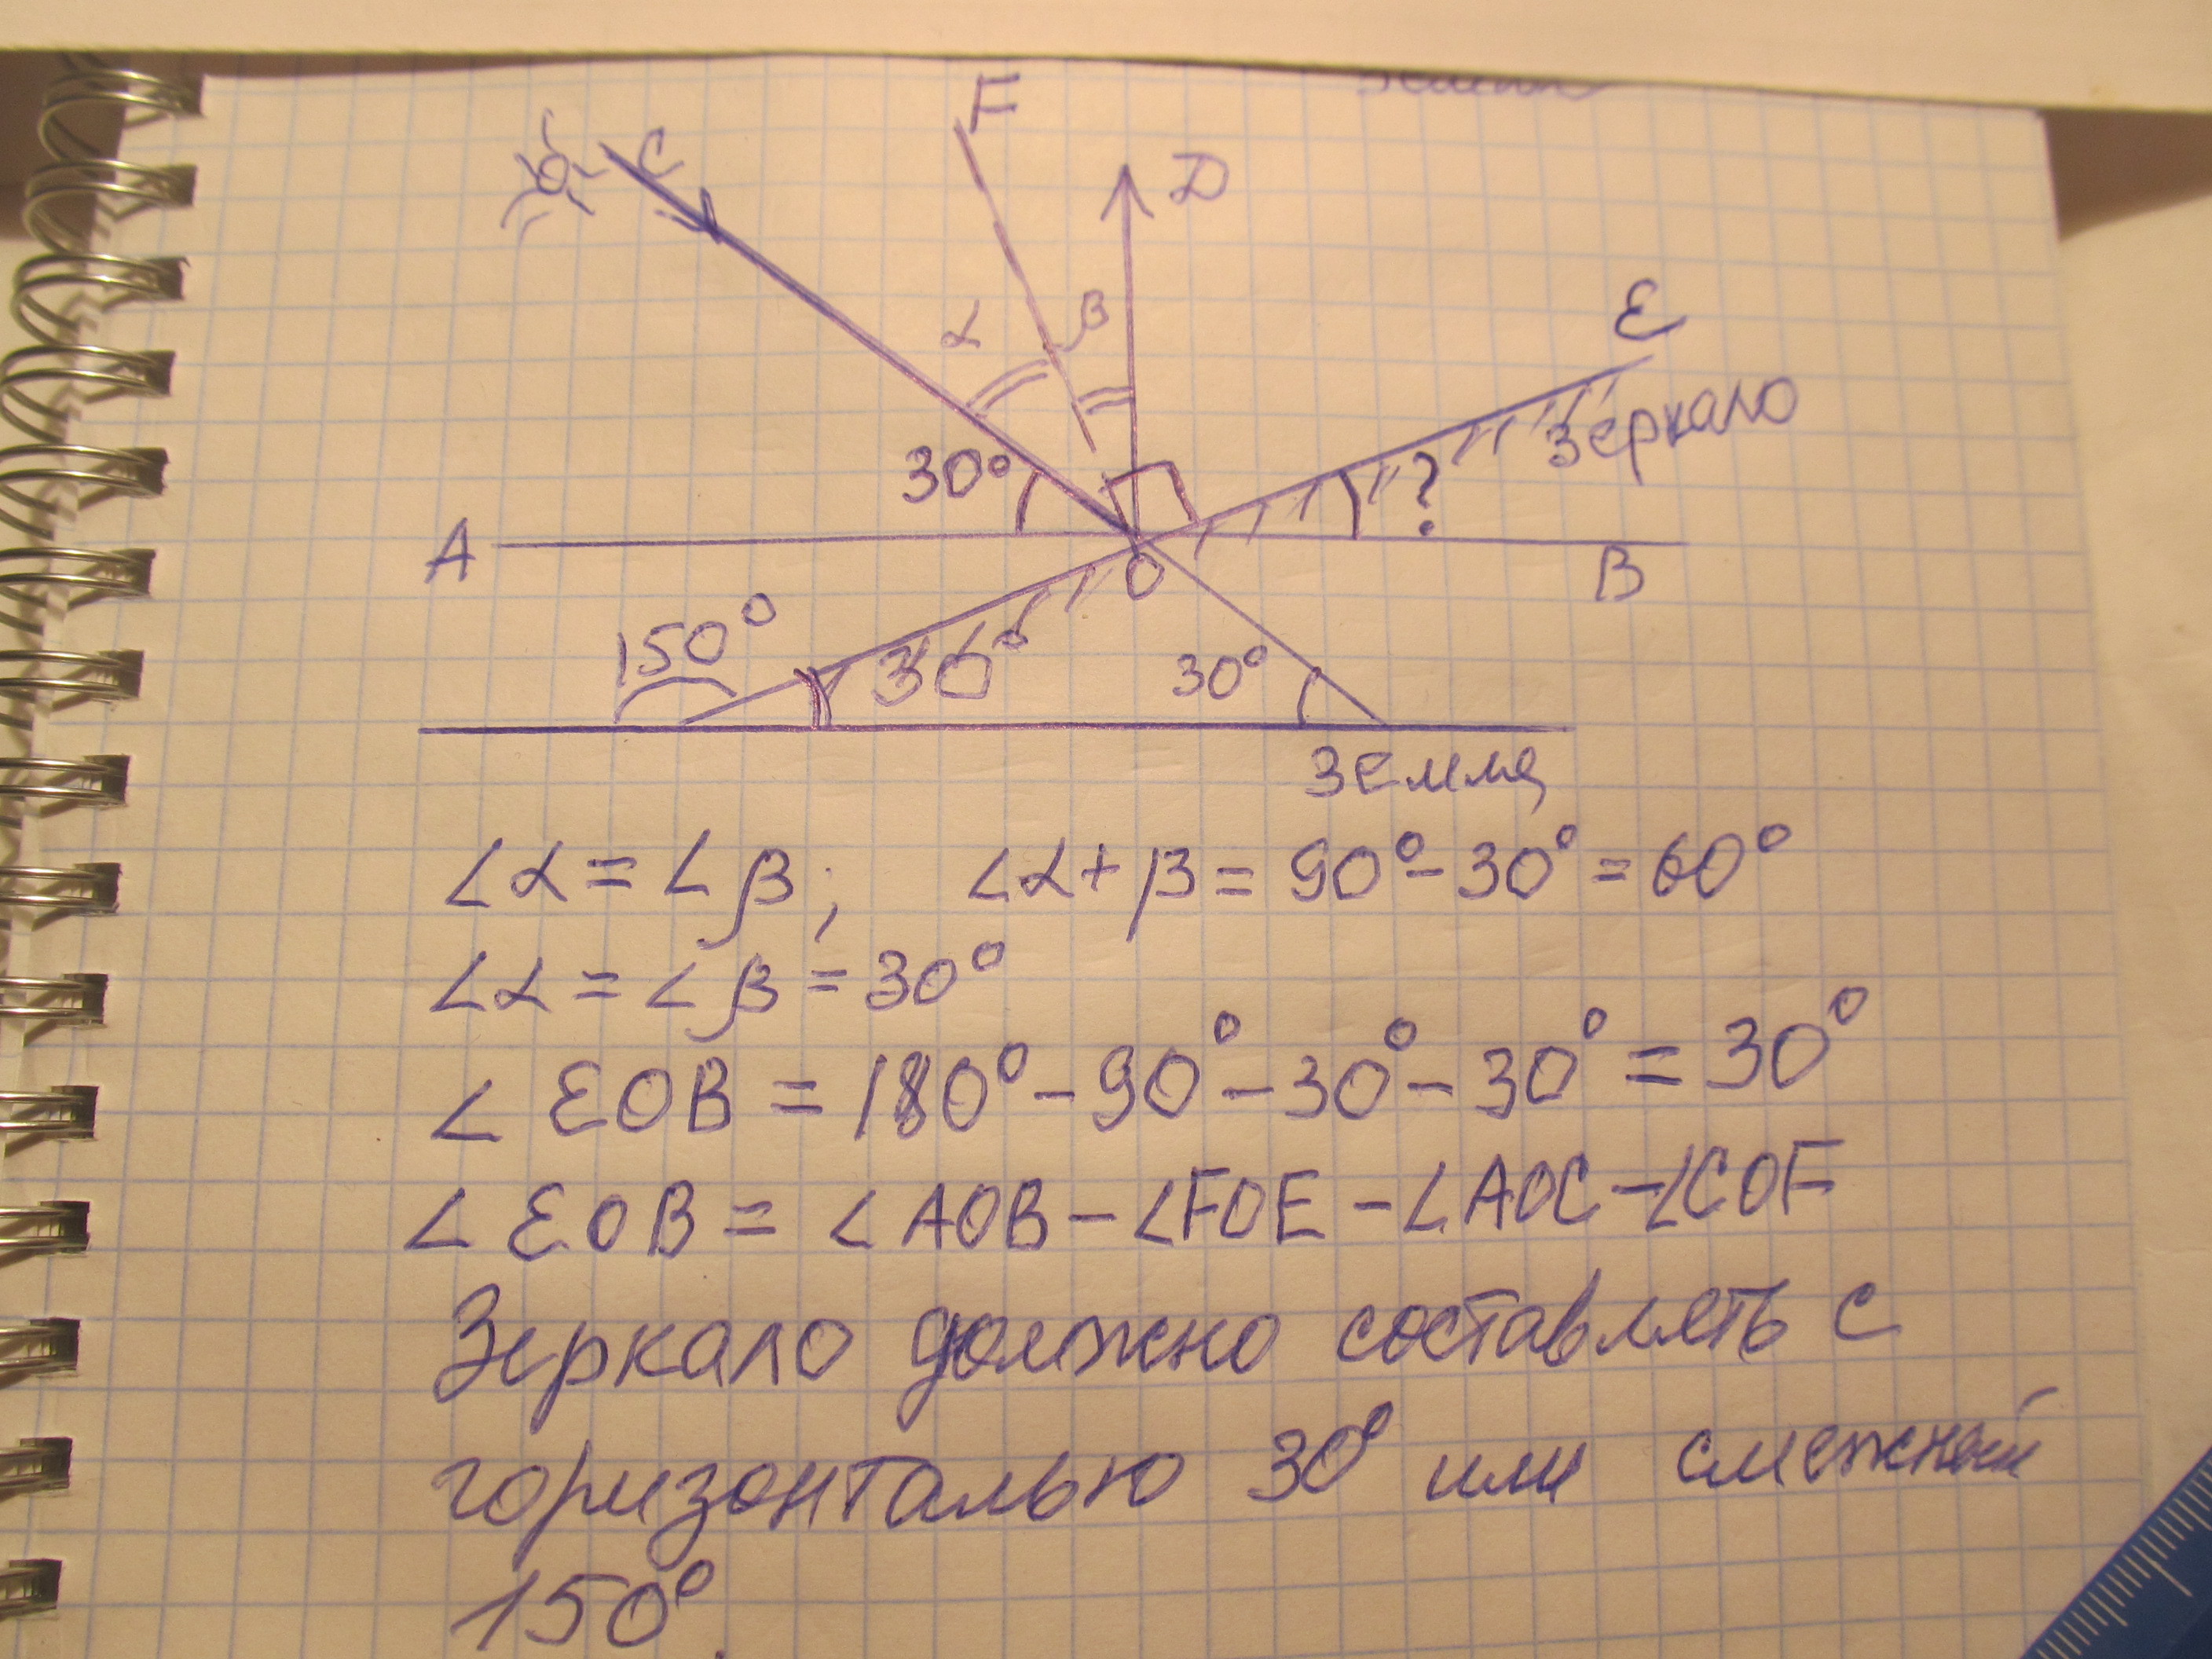 F
C
D
α
β
Е
зеркало
30°
?
А
О
В
150°
30°
30°
Земля
∠α = ∠β; ∠α+β = 90°-30° = 60°
∠α = ∠β = 30°
∠ ЕОВ = 180° - 90° - 30° - 30° = 30°
∠ ЕОВ = ∠АОВ - ∠FOE - ∠AOC - ∠COF
Зеркало должно составлять с
горизонталью 30° или смежный
150°.